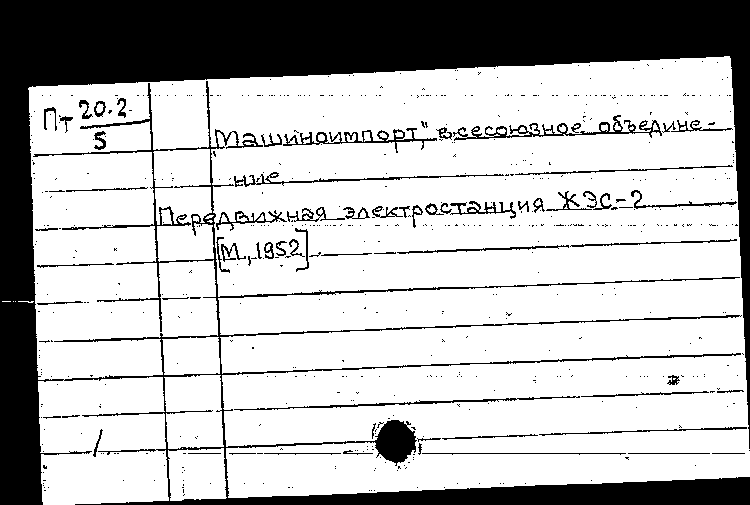 Пт 20.2
5
Машиноимпорт," всесоюзное объедине-
ние
Передвижная электростанция ЖЭС-2
[М., 1952]